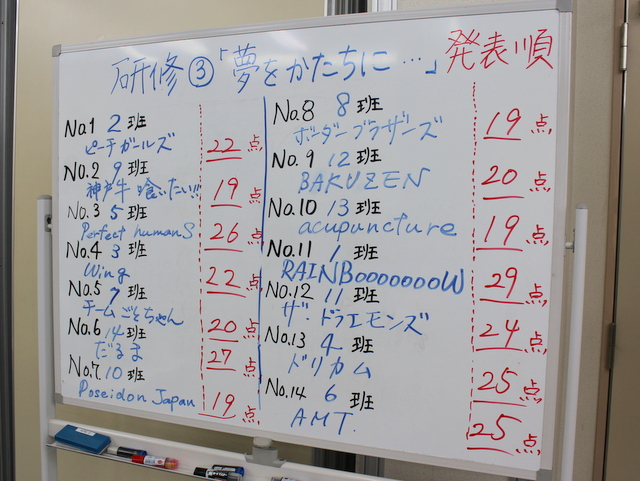 研修③「夢をかたちに…」発表順
No.1 2班
ピーチガールズ 22点
No.2 9班
神戸牛喰いたい!! 19点
No.3 5班
Perfect humanS 26点
No.4 3班
Wing 22点
No.5 7班
チームごとちゃん 20点
No.6 14班
だるま 27点
No.7 10班
Poseidon Japan 19点
No.8 8班
ボーダーブラザーズ 19点
No.9 12班
BAKUZEN 20点
No.10 13班
acupuncture 19点
No.11 1班
RAINBoooooooW 29点
No.12 11班
ザ・ドラエモンズ 24点
No.13 4班
ドリカム 25点
No.14 6班
AMT. 25点